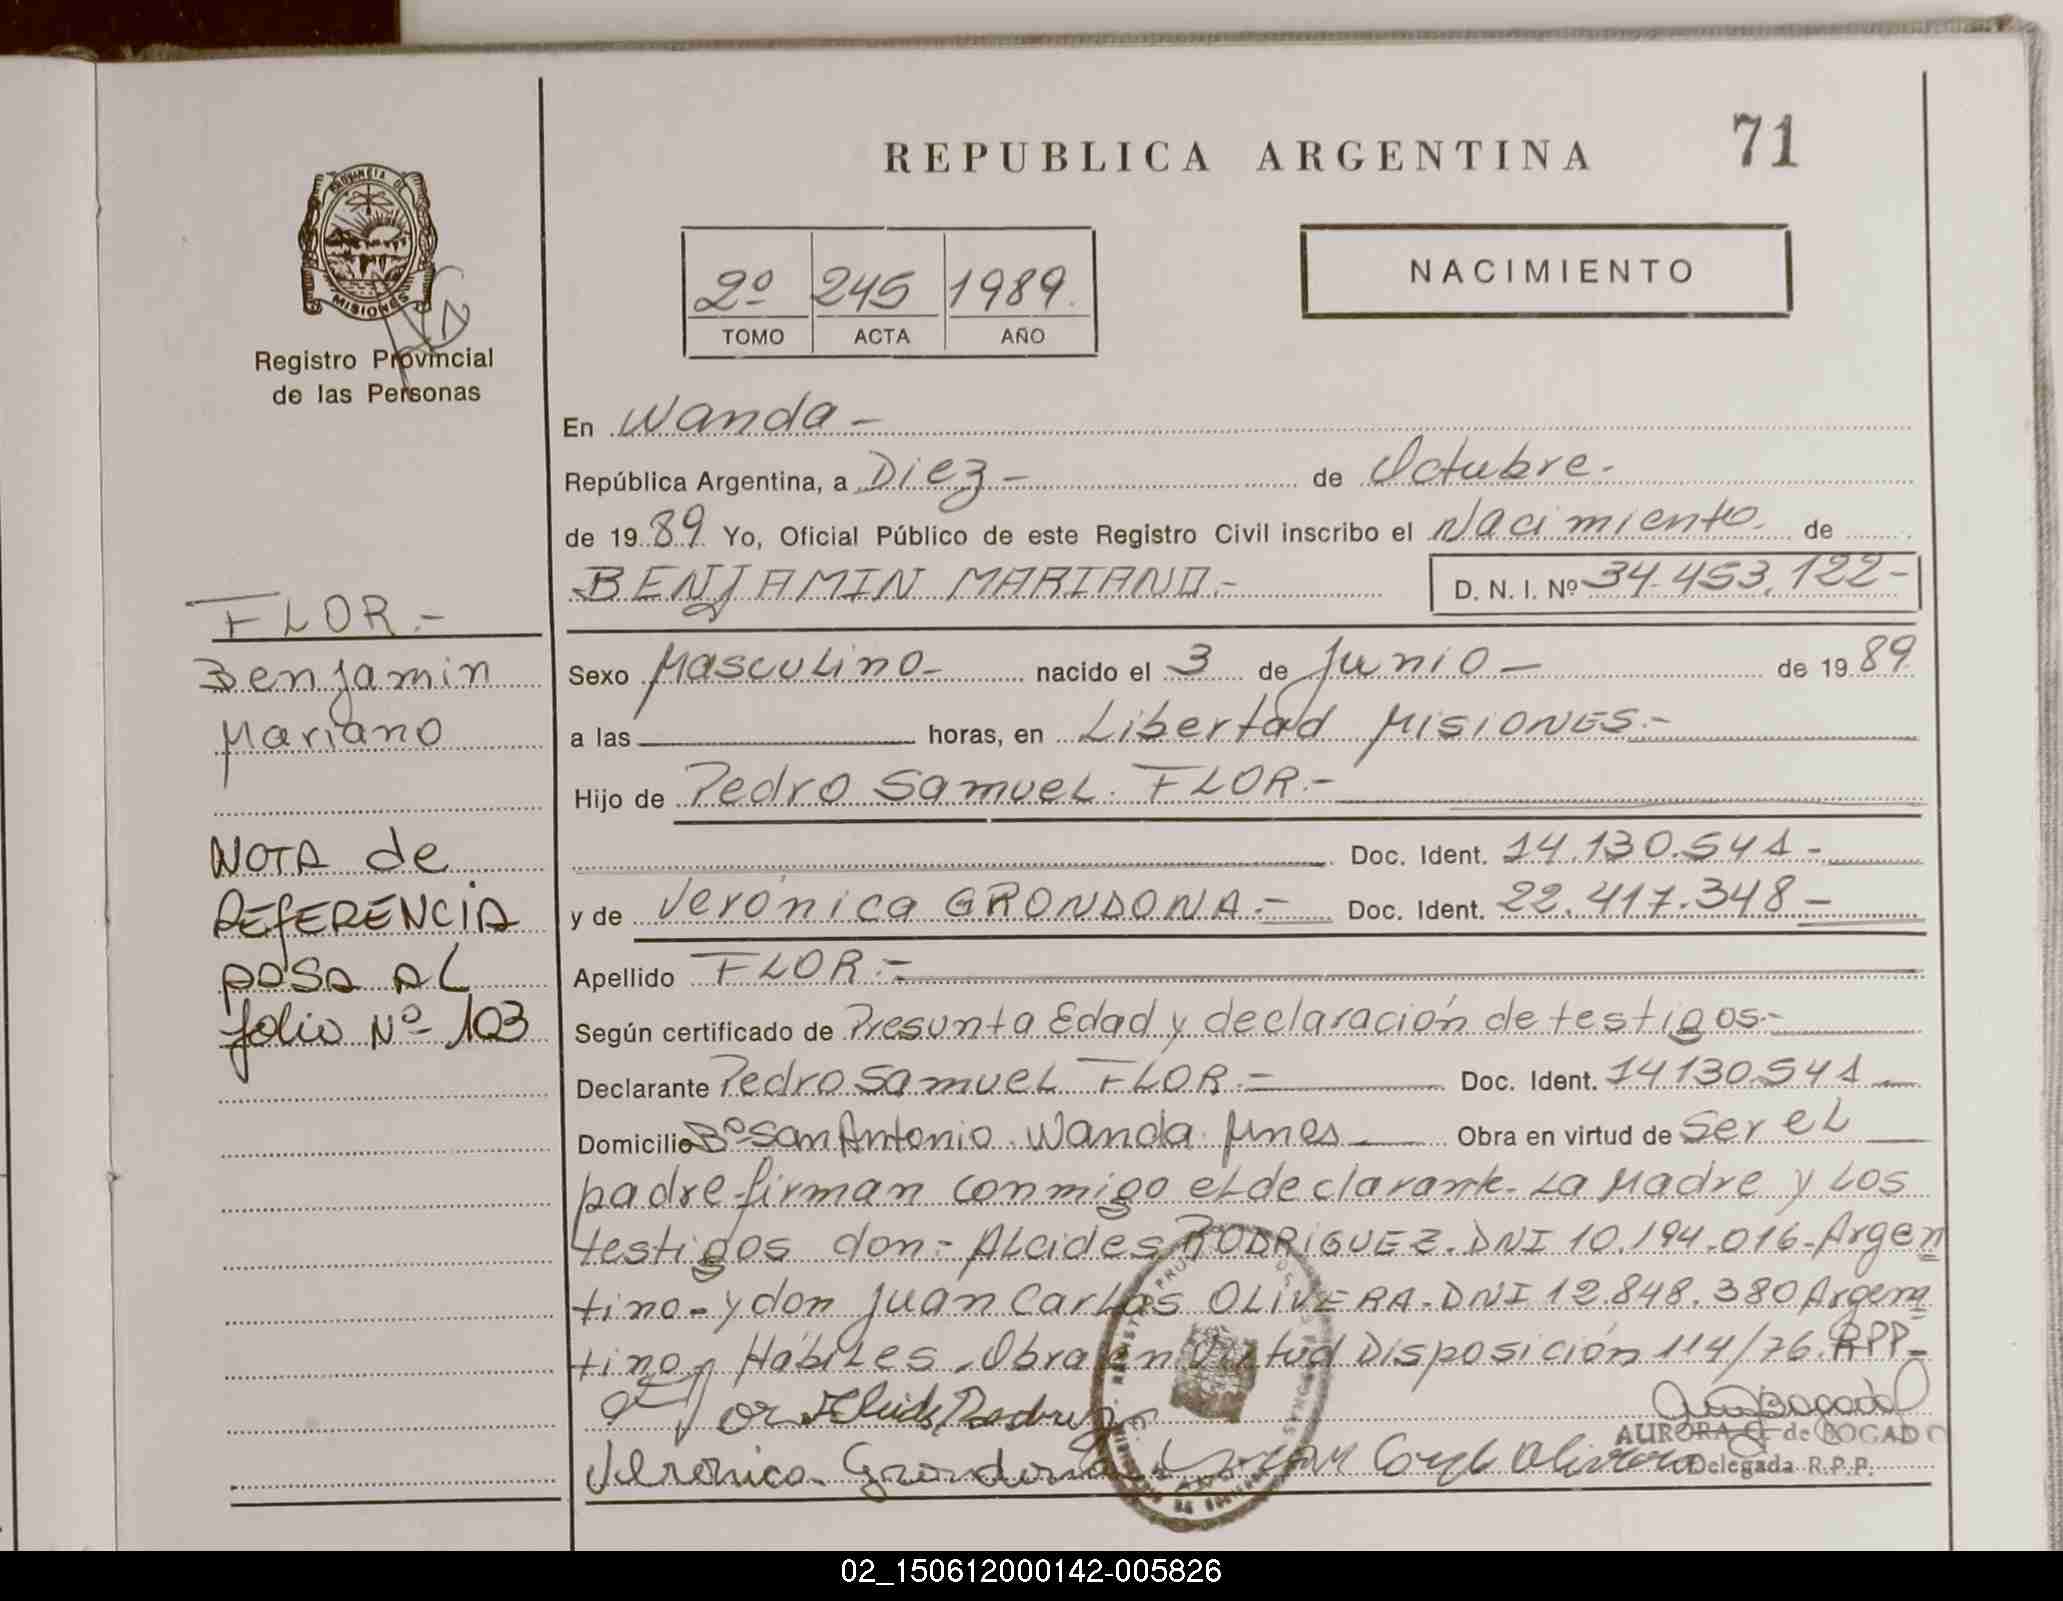 REPUBLICA ARGENTINA
71
PROVINCIA DE
MISIONES
Registro Provincial
de las Personas
2º 245 1989.
TOMO ACTA AÑO
NACIMIENTO
En Wanda -
República Argentina, a Diez - de Octubre.-
de 1989. Yo, Oficial Público de este Registro Civil inscribo el Nacimiento. de
BENJAMIN MARIANO.- D. N. I. Nº 34.453.122-
Sexo Masculino- nacido el 3 de Junio - de 1989.
a las horas, en Libertad Misiones.-
Hijo de Pedro Samuel. FLOR.-
Doc. Ident. 14.130.541-
y de Verónica GRONDONA.- Doc. Ident. 22.417.348-
Apellido FLOR.-
Según certificado de Presunta Edad y declaración de testigos.-
Declarante Pedro Samuel FLOR.- Doc. Ident. 14130541
Domicilio Bº San Antonio. Wanda. Mnes Obra en virtud de Ser el
padre-firman conmigo el declarante- La Madre y Los
testigos don- Alcides RODRIGUEZ. DNI 10.194.016-Argen
tino- y don Juan Carlos OLIVERA- DNI 12.848.380 Argen
tino- Hábiles. Obra en Virtud Disposición 114/76. RPP-
AURORA de BOGADO
Delegada R.P.P.
Veronica Grondona
FLOR.-
Benjamin
Mariano
NOTA de
REFERENCIA
PASA AL
folio Nº 103
02_150612000142-005826